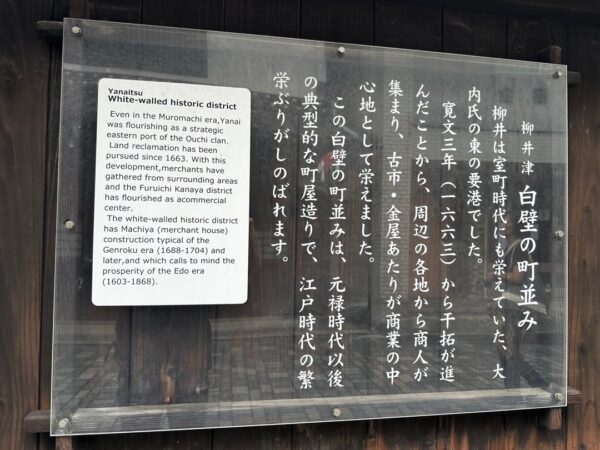 Yanaitsu
White-walled historic district
Even in the Muromachi era,Yanai
was flourishing as a strategic
eastern port of the Ouchi clan.
Land reclamation has been
pursued since 1663. With this
development,merchants have
gathered from surrounding areas
and the Furuichi Kanaya district
has flourished as acommercial
center.
The white-walled historic district
has Machiya (merchant house)
construction typical of the
Genroku era (1688-1704) and
later,and which calls to mind the
prosperity of the Edo era
(1603-1868).
柳井津 白壁の町並み
柳井は室町時代にも栄えていた、大
内氏の東の要港でした。
寛文三年（一六六三）から干拓が進
んだことから、周辺の各地から商人が
集まり、古市・金屋あたりが商業の中
心地として栄えました。
この白壁の町並みは、元禄時代以後
の典型的な町屋造りで、江戸時代の繁
栄ぶりがしのばれます。